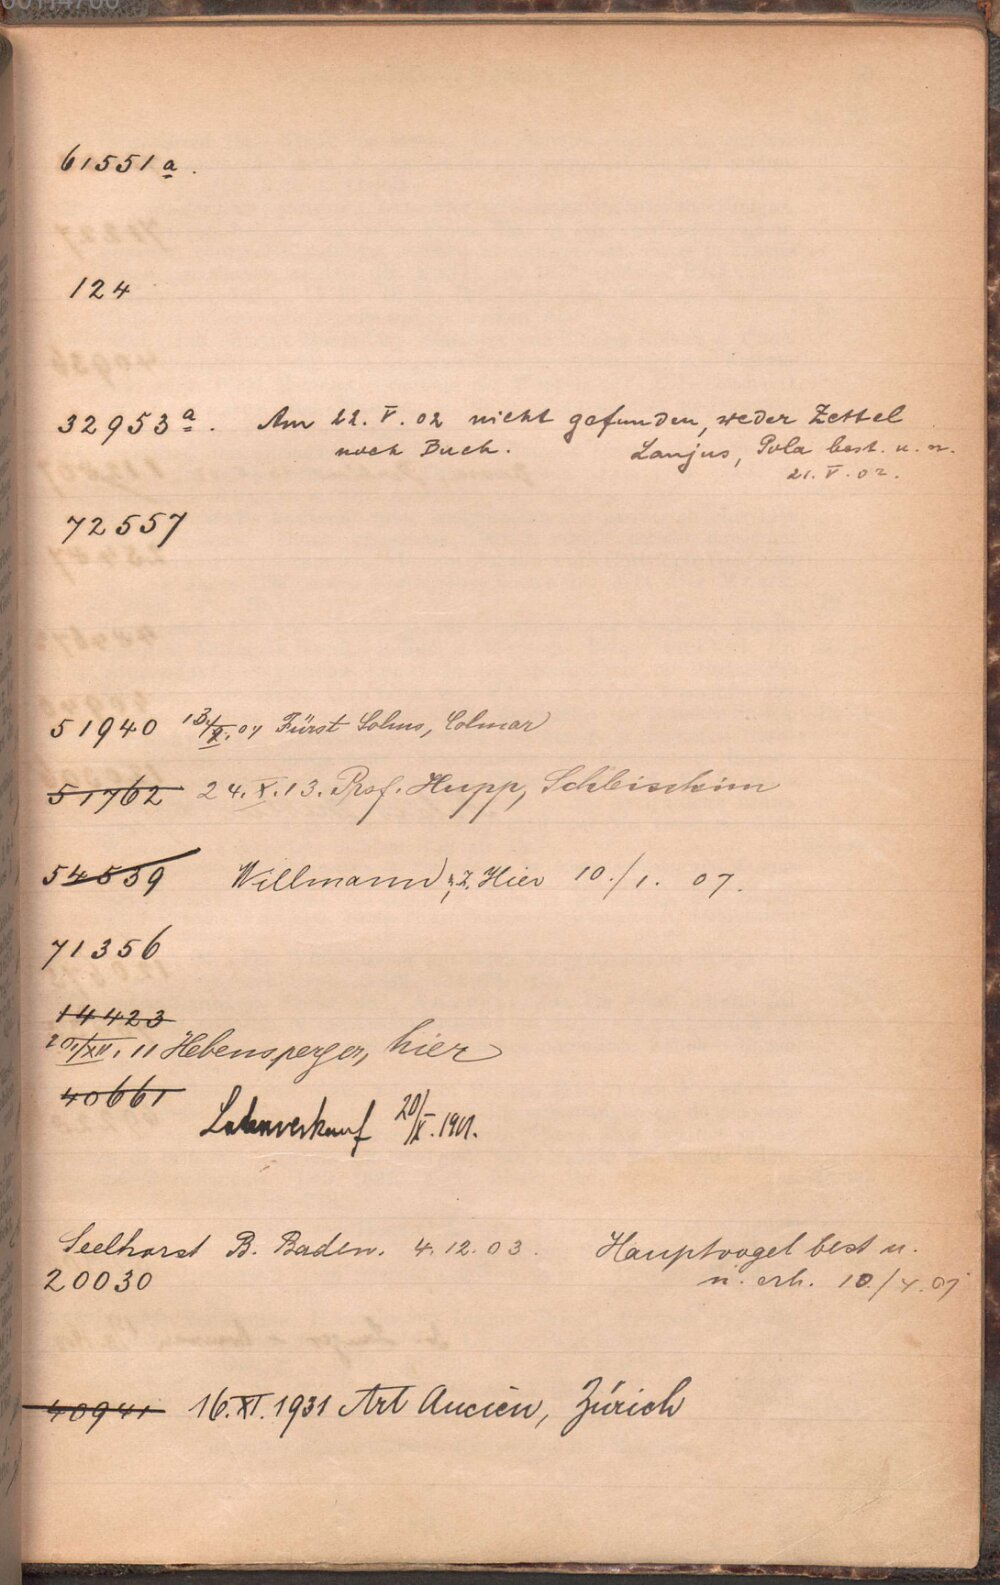 61551 a.
124
32953 a. Am 22. V. 02 nicht gefunden, weder Zettel
noch Buch. Lanjus, Pola best. u. n.
21. V. 02.
72557
51940 13/X. 07 Fürst Solms, Colmar
51762 24. X. 13. Prof. Hupp, Schleissheim
54539 Willmann, z. Hier 10./1. 07.
71356
14423
20/XII. 11 Hebensperger, hier
40661
Ladenverkauf 20/X. 1901.
Seelhorst B. Baden. 4. 12. 03. Hauptvogel best u.
20030 n. erh. 10./4. 07
40941 16. XI. 1931 Art Ancien, Zürich